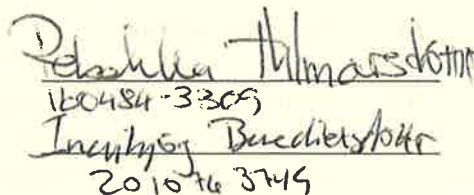 Rebekka Hilmarsdóttir
160484-3309
Ingibjörg Benediktsdóttir
201074 3749